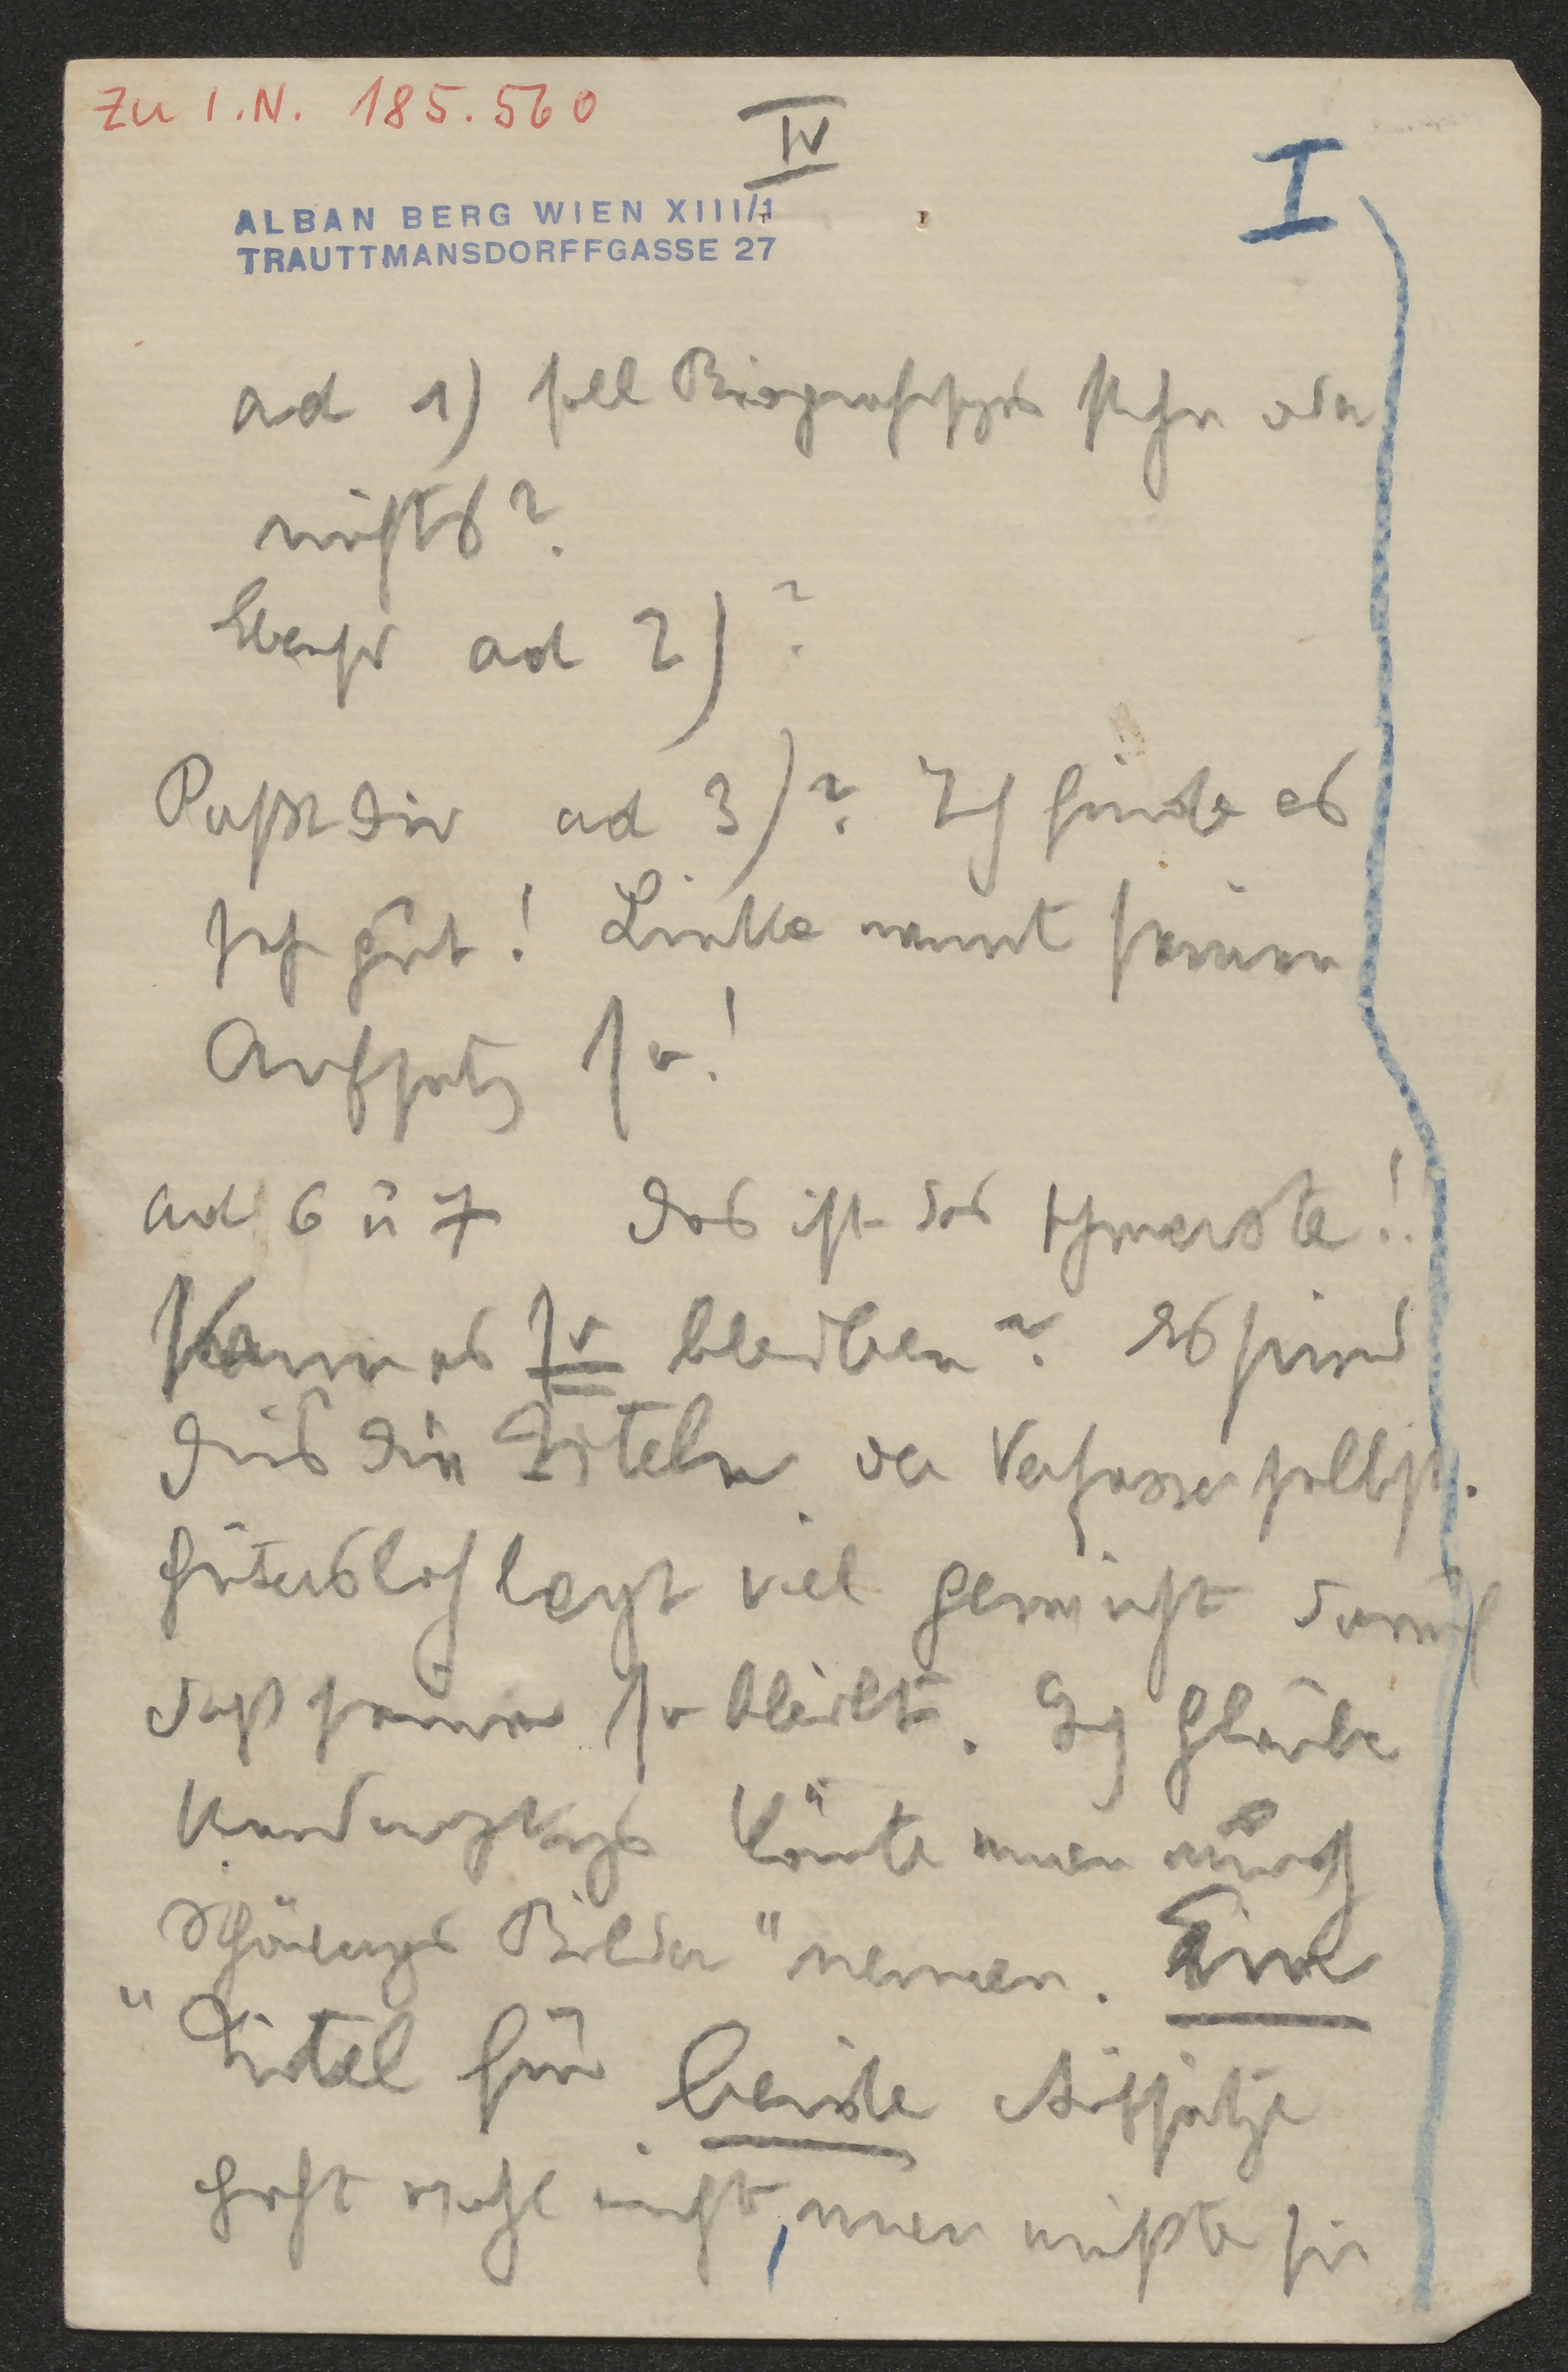 Zu I.N. 185.560
IV
I
ALBAN BERG WIEN XIII/1
TRAUTTMANSDORFFGASSE 27
ad 1) soll Biografisches stehn oder
nichts?
Ebenso ad 2)?
Paßt Dir ad 3)? Ich finde es
sehr gut! Linke nennt seinen
Aufsatz so!
ad 6 u 7 das ist das schwerste!
Kann es so bleiben? Es sind
dies die Titeln der Verfasser selbst.
Gütersloh legt viel Gewicht darauf
daß seiner so bleibt. Ich glaube
Kandinskys könnte man auch
Schönbergs Bilder" nennen. Ein
"Titel für beide Aufsätze
geht wohl nicht, man müßte sie